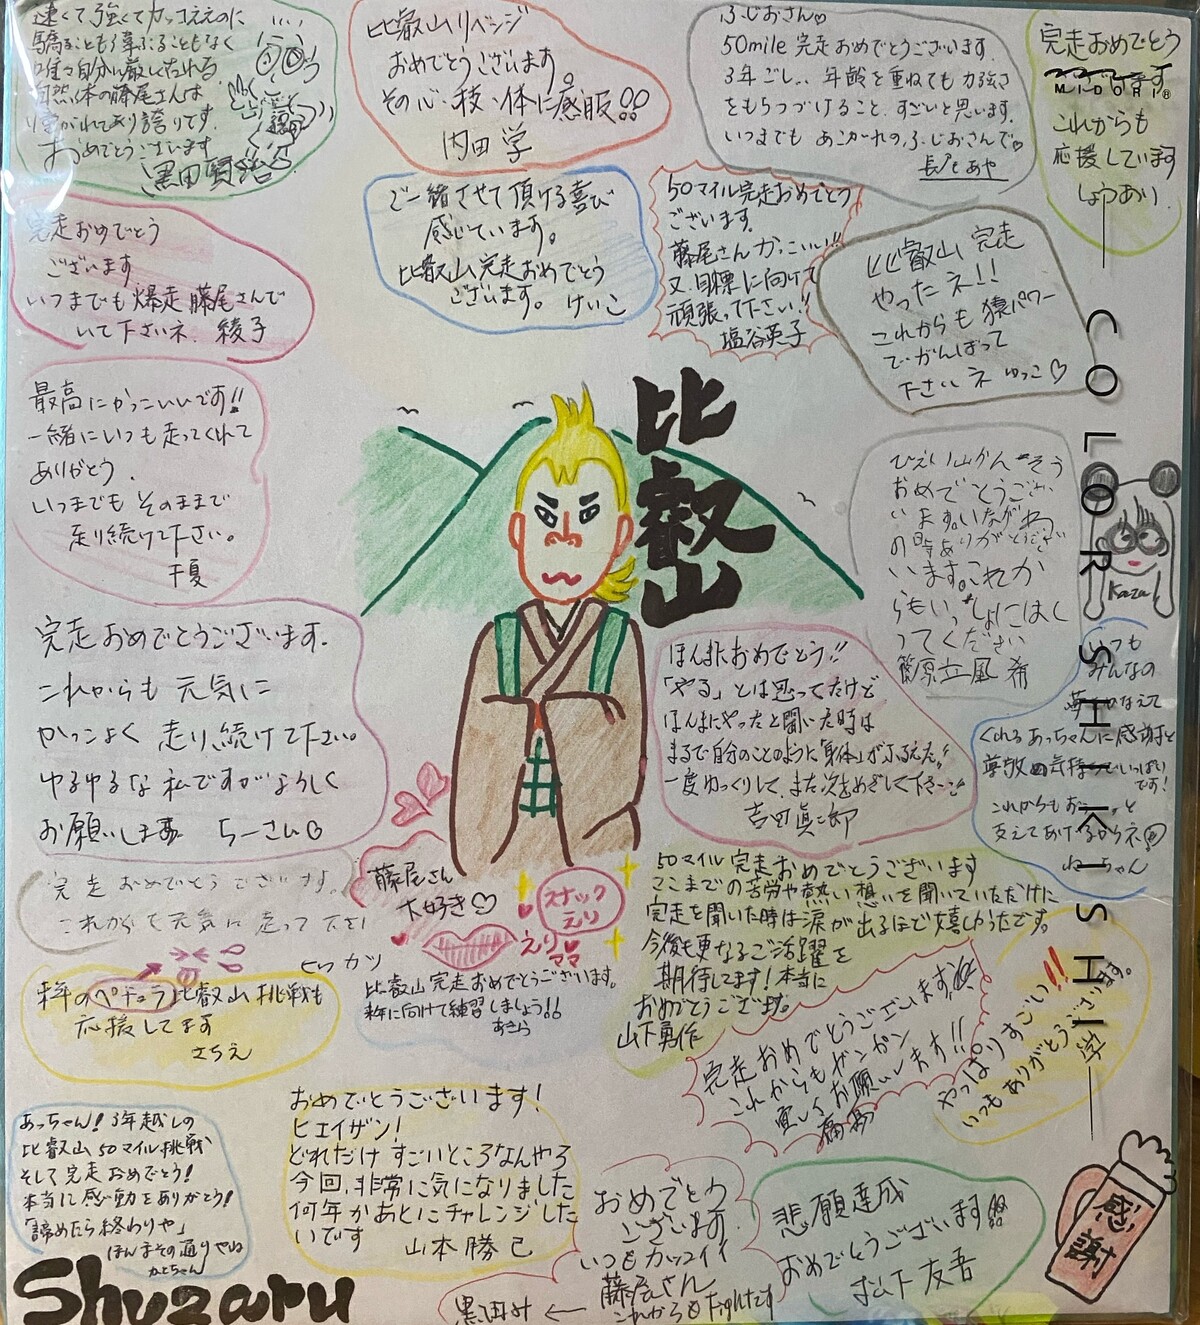 速くて強くてカッコええのに
驕ることも
自分に厳しくなれる
自然体の藤尾さんは
誇りです。
おめでとうございます
黒田賢治
比叡山リベンジ
おめでとうございます。
その心・技・体に感服!!
内田 学
ふじおさん♡
50mile 完走おめでとうございます。
3年ごし、、年齢を重ねても力強さ
をもちつづけること、すごいと思います。
いつまでも あこがれの、ふじおさんで♡
完走おめでとう
ます
MIDORI®
これからも
応援しています
完走おめでとう
ございます
いつまでも爆走藤尾さんで
いて下さいネ. 綾子
ご一緒させて頂ける喜び
感じています。
比叡山完走おめでとう
ございます。 けいこ
50マイル完走おめでとう
ございます。
藤尾さんかっこいい!!
又、目標に向けて
頑張って下さい!!
塩谷英子
比叡山完走
やったネ!!
これからも猿パワー
でがんばって
下さいネ ゆっこ♡
最高にかっこいいです!!
一緒にいつも走ってくれて
ありがとう.
いつまでも そのままで
走り続けて下さい。
千夏
比叡山
ひえい山かんそう
おめでとうござい
ます。いながわ
の時ありがとうござ
います。これか
らもいっしょにはし
ってください
COLOR SHIKISHI
Kaza
完走おめでとうございます.
これからも 元気に
かっこよく 走り続けて下さい。
ゆるゆるな私ですがよろしく
お願いします ちーさん♡
ほんまにおめでとう!!
「やる」とは思ってたけど
ほんまにやったと聞いた時は
まるで自分のことのように「身体」がふるえた!!
一度ゆっくりして、また次をめざして下さーい
吉田眞二郎
いつも
みんなの
夢をかなえて
くれるあっちゃんに感謝と
尊敬の気持ちでいっぱい
です!
これからもず と
支えてあげるからネ
ねーちゃん
完走おめでとうございます。
これからも元気に走って下さい
ヒロカツ
藤尾さん
大好き♡
スナック
えり
えりママ
50マイル完走おめでとうございます
ここまでの苦労や熱い想いを聞いていただけに
完走を聞いた時は涙が出るほど嬉しかったです。
今後も更なるご活躍を
期待してます!本当に
おめでとうございます。
山下勇作
来年のペドラ比叡山挑戦も
応援してます
さちえ
比叡山完走おめでとうございます。
来年に向けて練習しましょう!!
あきら
完走おめでとうございます。
これからもガンガン
宜しくお願いします!!
やっぱりすごい!!
いつもありがとうございます。
学
あっちゃん!3年越しの
比叡山50マイル挑戦
そして完走おめでとう!
本当に感動をありがとう!
「諦めたら終わりや」
ほんまその通りやね
かとちゃん
おめでとうございます!
ヒエイザン!
どれだけ すごいところなんやろ
今回、非常に気になりました
何年かあとにチャレンジした
いです 山本勝己
おめでとう
ございます
いつもカッコイイ
藤尾さん
これからもfightです
悲願達成
おめでとうございます
松下友吾
感謝
Shuzaru